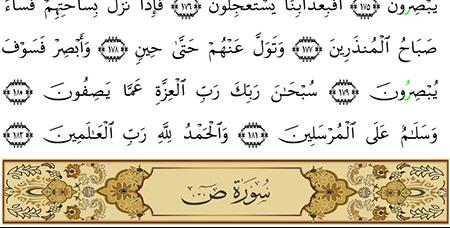 يُبۡصِرُونَ ١٧٥ أَفَبِعَذَابِنَا يَسۡتَعۡجِلُونَ ١٧٦ فَإِذَا نَزَلَ بِسَاحَتِهِمۡ فَسَآءَ
صَبَاحُ ٱلۡمُنذَرِينَ ١٧٧ وَتَوَلَّ عَنۡهُمۡ حَتَّىٰ حِينٖ ١٧٨ وَأَبۡصِرۡ فَسَوۡفَ
يُبۡصِرُونَ ١٧٩ سُبۡحَٰنَ رَبِّكَ رَبِّ ٱلۡعِزَّةِ عَمَّا يَصِفُونَ ١٨٠
وَسَلَٰمٌ عَلَى ٱلۡمُرۡسَلِينَ ١٨١ وَٱلۡحَمۡدُ لِلَّهِ رَبِّ ٱلۡعَٰلَمِينَ ١٨٢
سُورَةُ صٓ